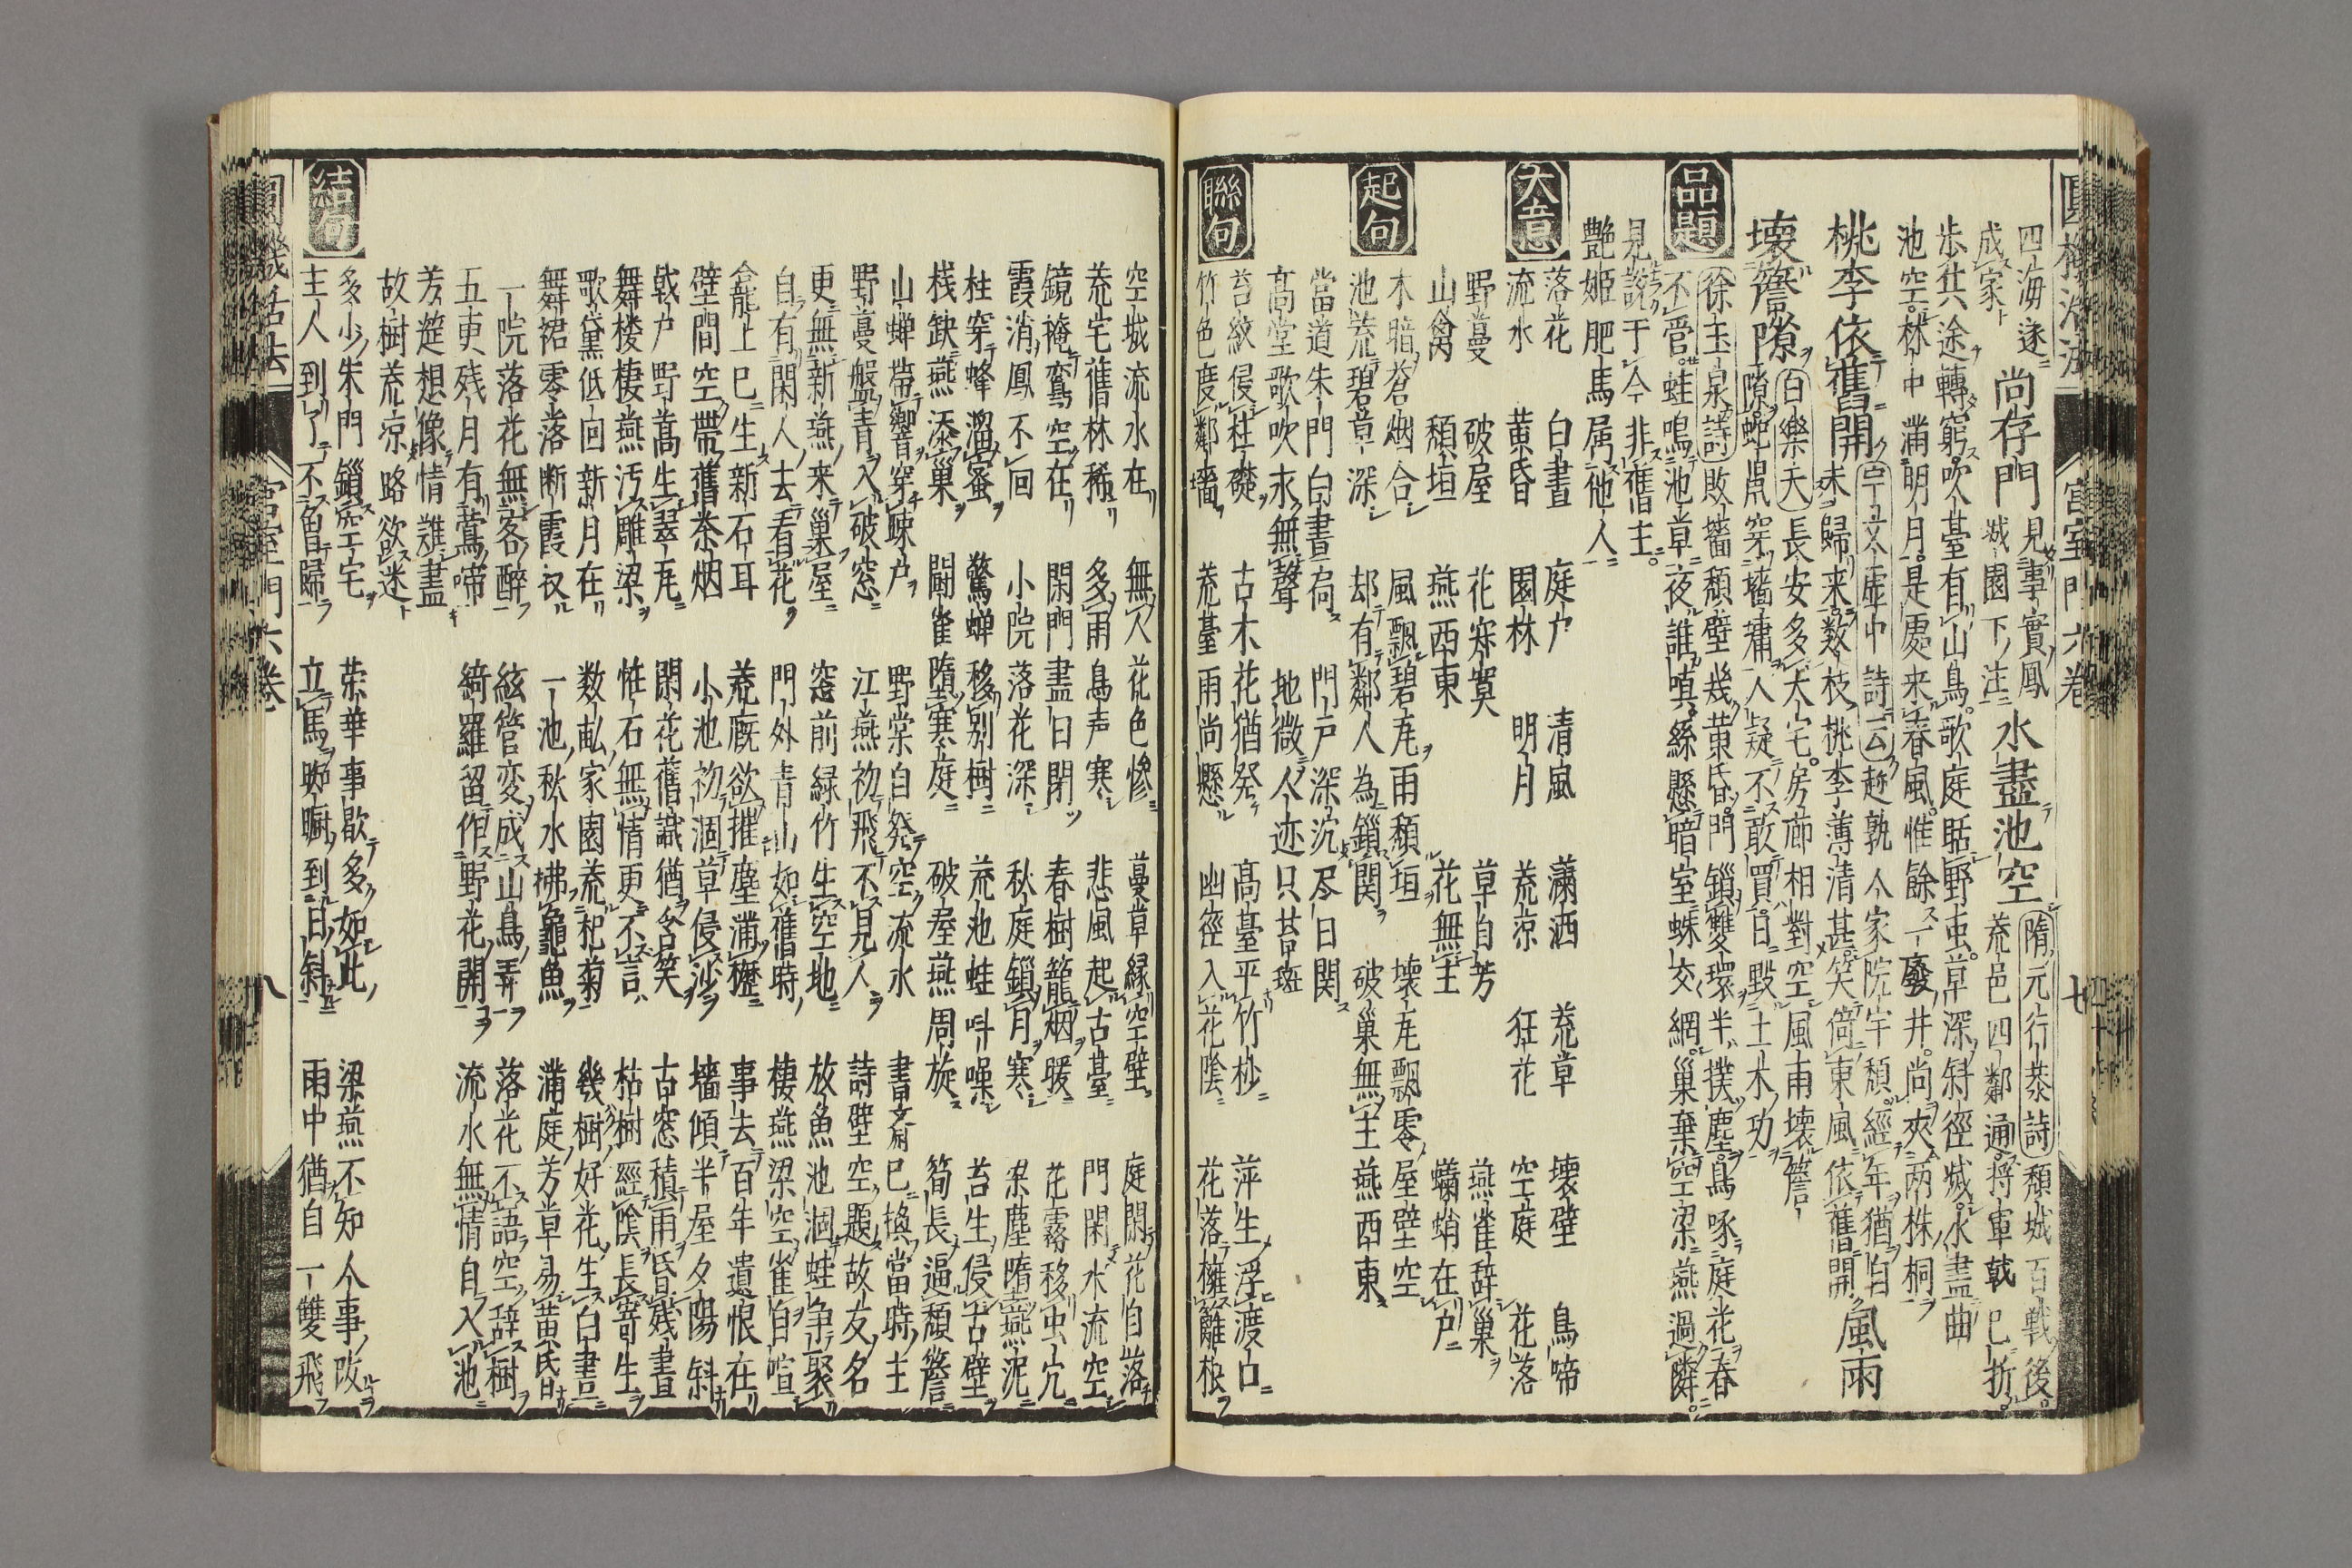 四海遂
成家
尚存門
見事實鳳
城園下注
水盡池空
隋元行恭詩
頽城百戰後
荒邑四鄰通將軍戟已折
歩兵途轉窮吹臺有山鳥歌庭聒野虫草深斜徑滅水盡曲
池空林中滿明月是處来春風惟餘一廢井尚夾両株桐
桃李依舊開
未歸来數枝桃李薄清甚笑倚東風依舊開
風雨
壊簷隙
白樂天
長安多大宅房廊相對空風雨壊簷
隙蛇鼠穿墻墉人疑不敢買日毀土木功
品題
徐玉泉詩
敗墻頽壁幾黄昏門鎖雙環半撲塵鳥啄庭花春
不管蛙鳴池草夜誰嗔絲懸暗室蛛交網巢棄空梁燕過隣
見說于今非舊主
艷姫肥馬属他人
大意
落花　白晝　庭户　清風　瀟洒　荒草　壊壁　鳥啼
流水　黄昏　園林　明月　荒凉　狂花　空庭　花落
野蔓　破屋　花寂寞　草自芳　燕雀辞巢
山禽　頽垣　燕西東　花無主　蠨蛸在户
起句
木暗蒼烟合　風飄碧瓦雨頽垣　壊瓦飄零屋壁空
池荒碧草深　却有鄰人為鎖関　破巢無主燕西東
當道朱門白晝扃　門戸深沉尽日関
髙堂歌吹永無聲　地微人迹只苔斑
聯句
苔紋侵柱礎　古木花猶發　髙臺平竹杪　萍生浮渡口
竹色度鄰墻　荒臺雨尚懸　幽徑入花陰　花落擁籬根
空城流水在　無人花色慘　蔓草縁空壁　庭閑花自落
荒宅舊林稀　多雨鳥声寒　悲風起古臺　門閑水流空
鏡掩鸞空在　閑門盡日閉　春樹籠烟暖　花霧移虫穴
霞消鳳不回　小院落花深　秋庭鎖月寒　梁塵堕燕泥
柱穿蜂溜蜜　驚蝉移別樹　荒池蛙呌噪　苔生侵古壁
栈缺燕添巢　闘雀墮寒庭　破屋燕周旋　筍長逼頽簷
山蝉帯響穿疎户　野棠自發空流水　書已換當時主
野蔓盤青入破窓　江燕初飛不見人　詩壁空題故友名
更無新燕来巢屋　窓前緑竹生空地　放魚池涸蛙争聚
自有閑人去看花　門外青山如舊時　棲燕梁空雀自喧
龕上已生新石耳　荒廐欲摧塵滿櫪　事去百年遺恨在
壁間空帶舊茶烟　小池初涸草侵沙　墻傾半屋夕陽斜
戟户野蒿生翠瓦　閑花舊識猶含笑　古窓積雨昏殘晝
舞楼棲燕汚雕梁　惟石無情更不言　枯樹經陰長寄生
歌黛低回新月在　数畒家園荒杞菊　幾樹好花生白晝
舞裙零落断霞　一池秋水拂龜魚　滿庭芳草易黄昏
一院落花無客醉　絃管変成山鳥弄　落花不語空辞樹
五更残月有鶯啼　綺羅留作野花開　流水無情自入池
芳筵想像情誰盡
故樹荒凉路欲迷
結句
多少朱門鎖空宅　荣華事歇多如此　梁燕不知人事改
主人到了不曽歸　立馬踟蹰到日斜　雨中猶自一雙飛
圓機活法　宮室門六卷　七
圓機活法　宮室門六卷　八